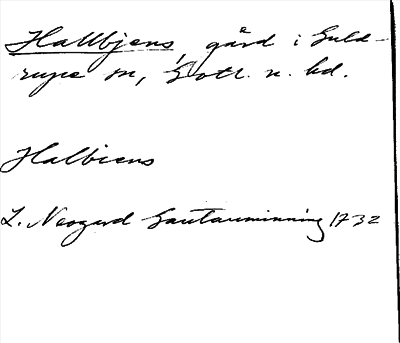 Hallbjens, gård i Guld-
rupe sn, Gotl. n. hd.
Halbiens
L. Neogard Gautauminning 1732